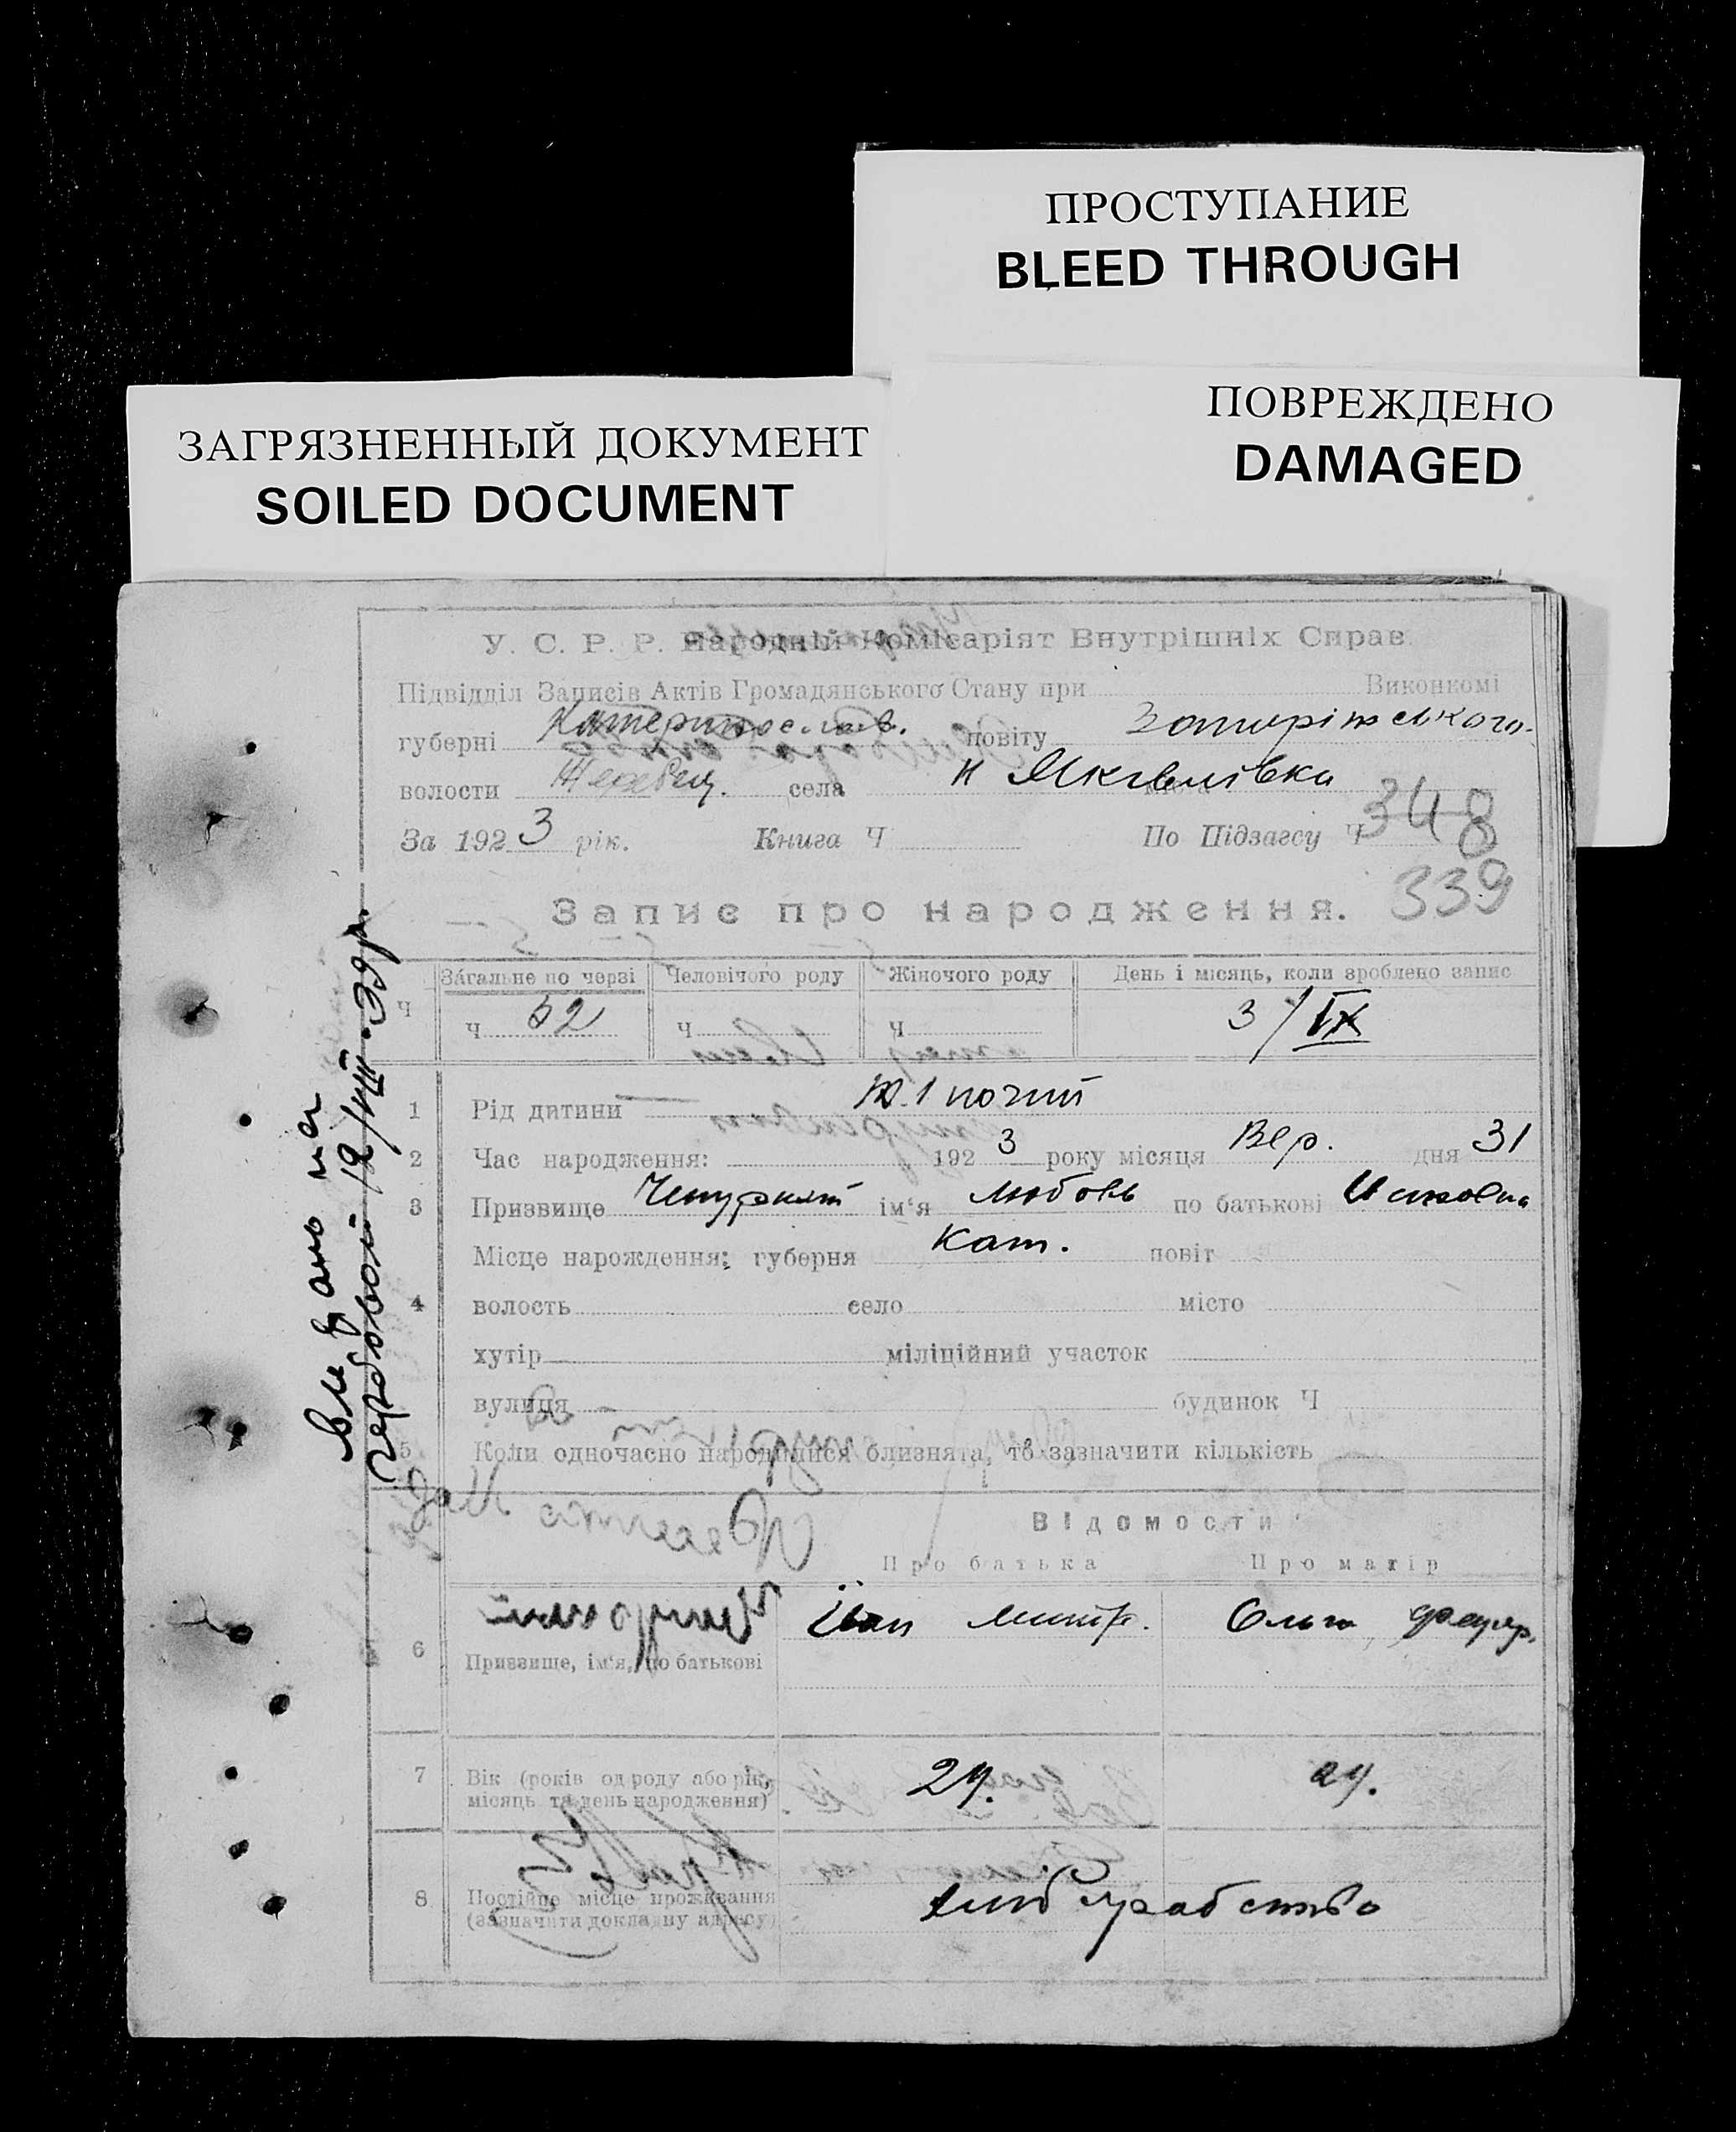 ПРОСТУПАНИЕ
BLEED THROUGH
ПОВРЕЖДЕНО
DAMAGED
ЗАГРЯЗНЕННЫЙ ДОКУМЕНТ
SOILED DOCUMENT
У. С. Р. Р. Народній Комісаріят Внутрішніх Справ.
Підвідділ Записів Актів Громадянського Стану при Виконкомі
губерні Катеринослав. повіту
волости Жеребец. села
За 192 3 рік. Книга Ч По Підзагсу Ч 348
339
Запис про народження.
Загальне по черзі Человічого роду Жіночого роду День і місяць, коли зроблено запис
Ч
Ч 52 Ч Ч 3/IX
1 Рід дитини
2 Час народження: 192 3 року місяця Вер. дня 31
3 Призвище ім'я Любовь по батькові
Місце нарождення: губерня Кат. повіт
4 волость село місто
хутір міліційний участок
вулиця будинок Ч
5 Коли одночасно народилися близнята, то зазначити кількість
Відомости
Про батька Про матір
6 Призвище, ім'я, по батькові Іван Ольга
7 Вік (років од роду або рік, місяць та день народження) 29. 29.
8 Постійне місце проживання (зазначити докладну адресу)